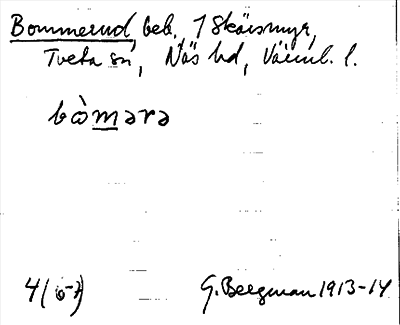 Bommerud, beb., 1 Skärsmyr,
Tveta sn, Näs hd, Värml. l.
bòmərə
4(
G. Bergman 1913-14